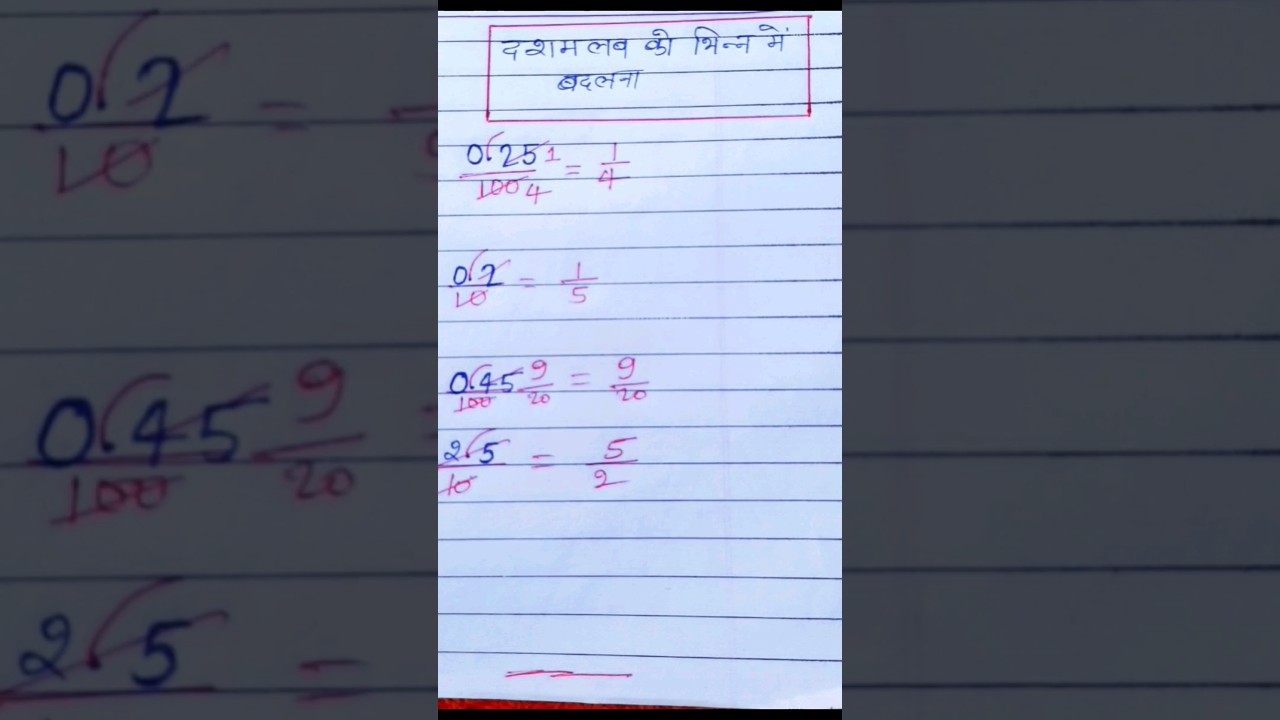 दशमलव को भिन्न में
बदलना
0.25/100 1/4 = 1/4
0.2/10 = 1/5
0.45/100 9/20 = 9/20
2.5/10 = 5/2